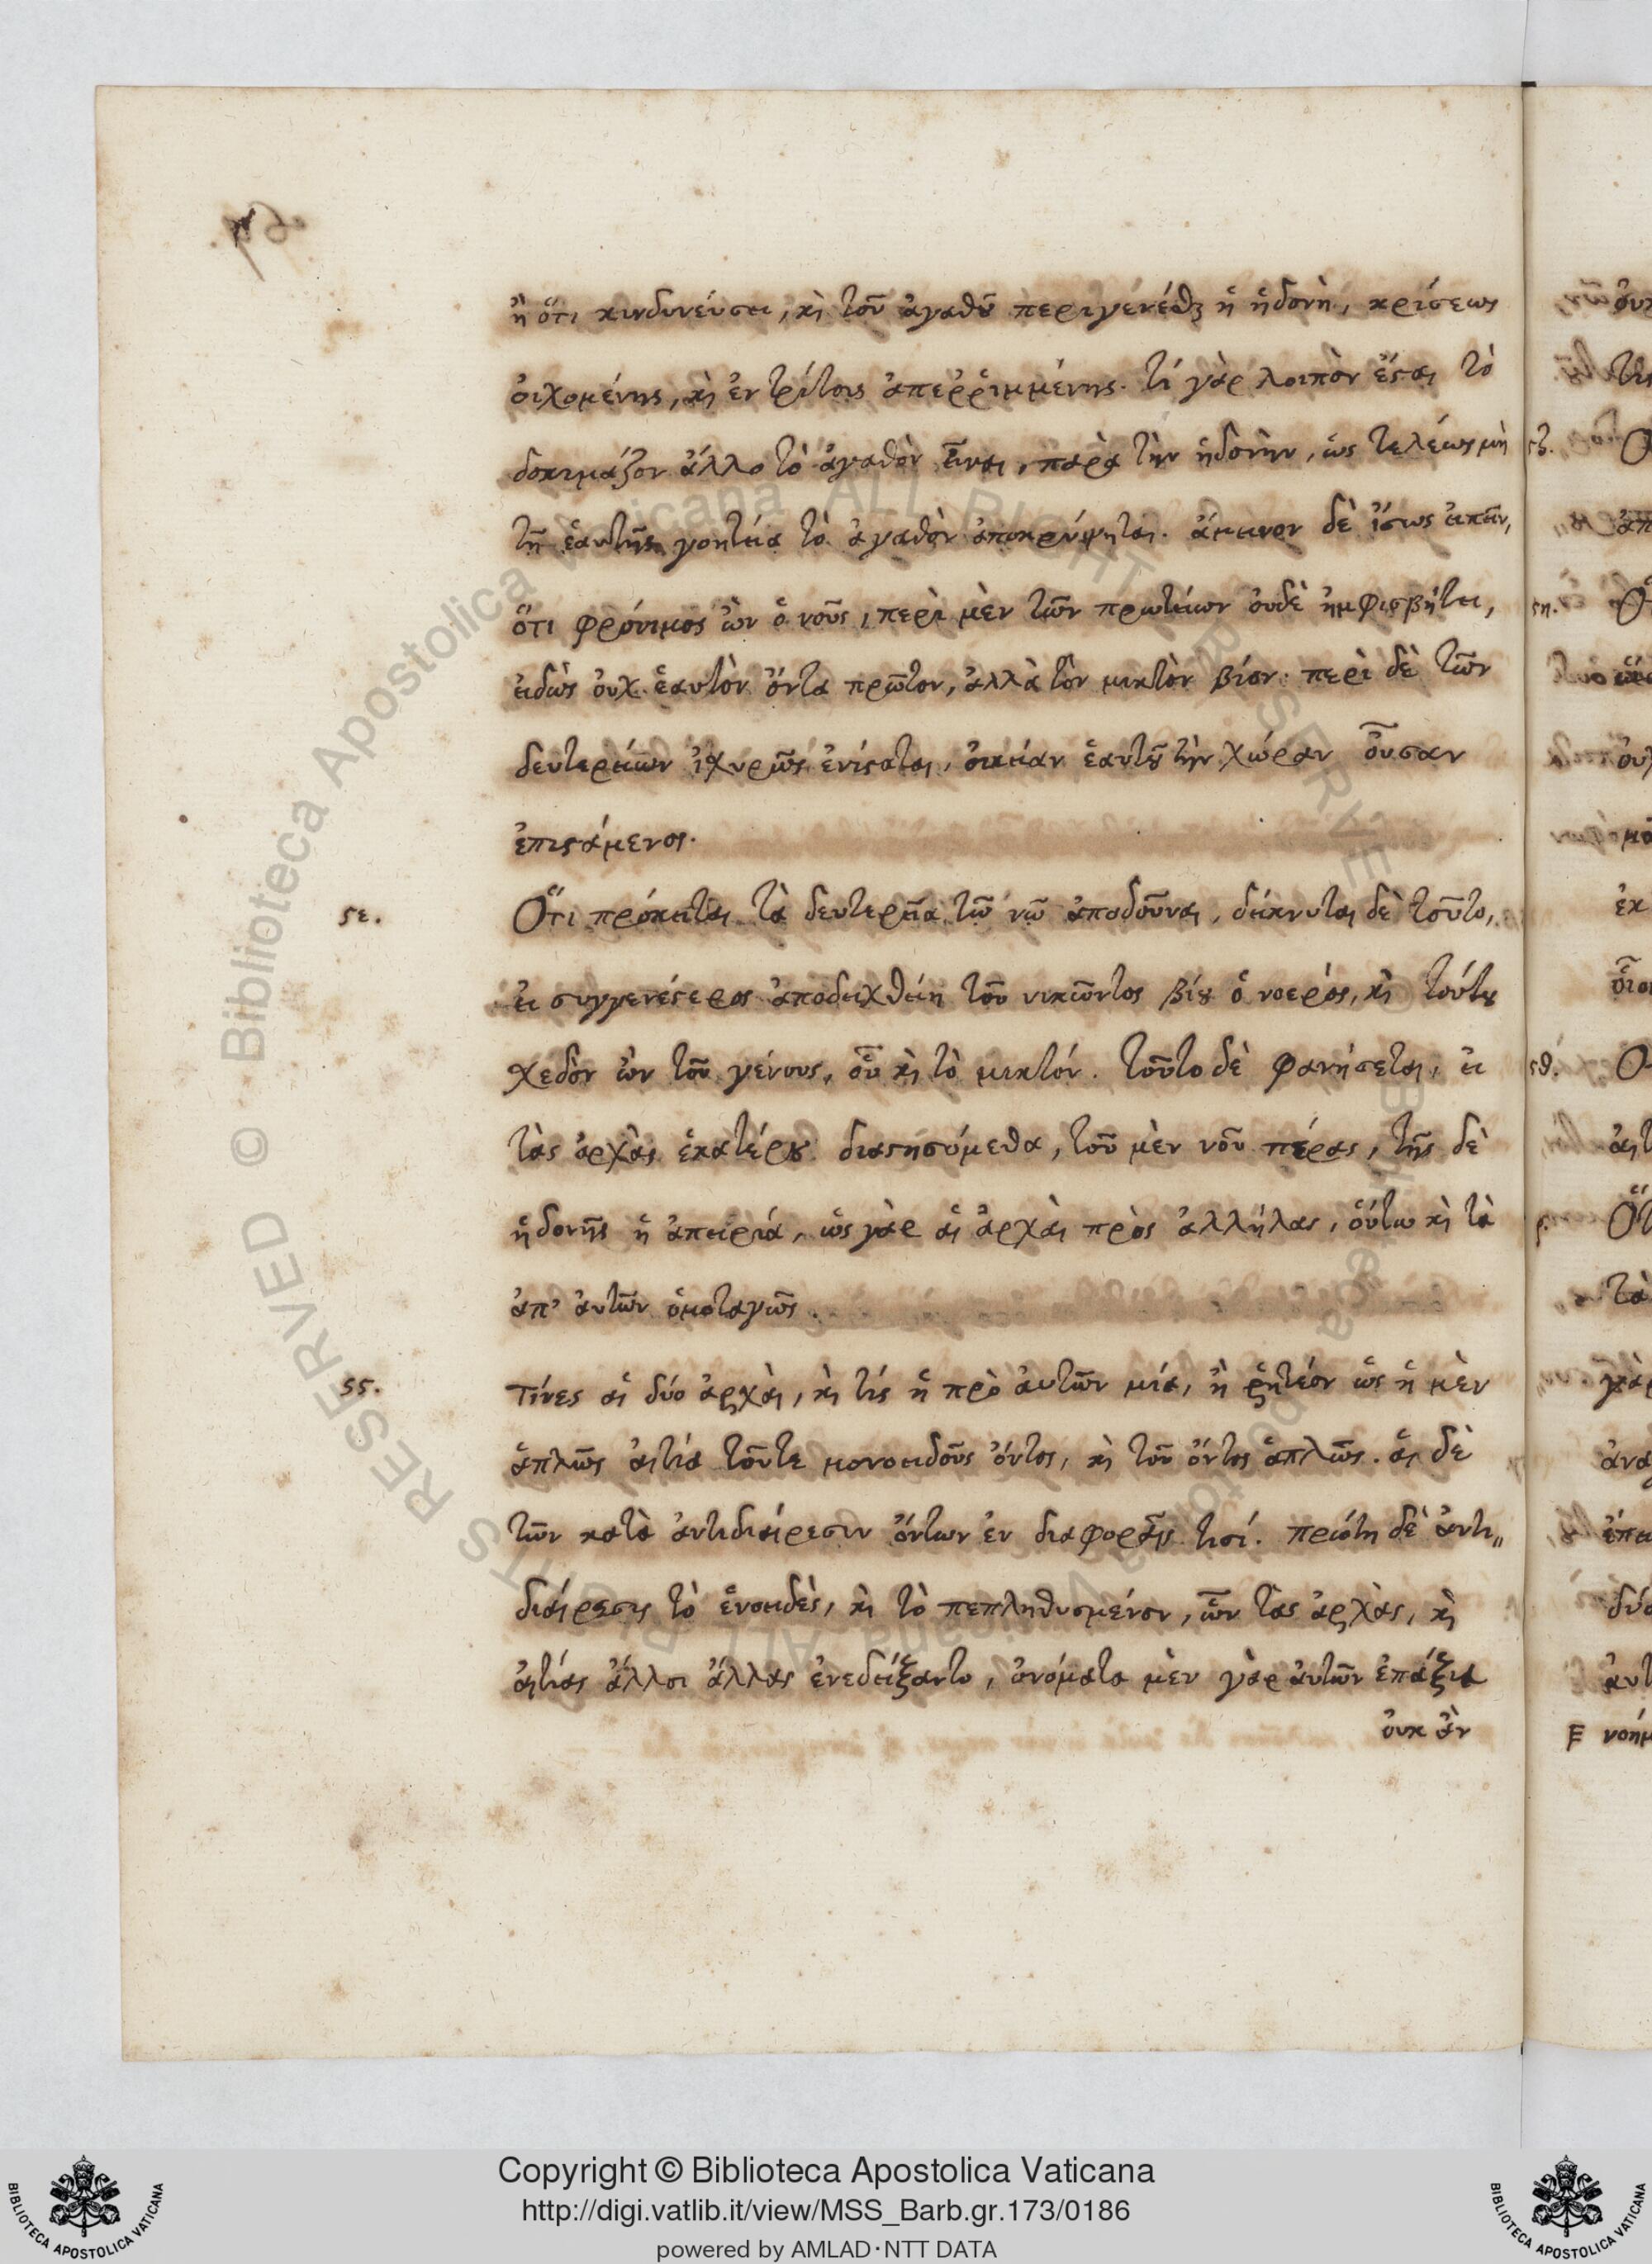 ἢ ὅτι κινδυνεύσει, καὶ τοῦ ἀγαθοῦ περιγενέσθαι ἡ ἡδονὴ, κρίσεως
οἰχομένης, καὶ ἐν τρίτοις ἀπερῤῥιμμένης. τί γὰρ λοιπὸν ἔσται τὸ
δοκιμάζον ἄλλο τὸ ἀγαθὸν εἶναι, παρὰ τὴν ἡδονὴν, ὡς τελέως μὴ
τῇ ἑαυτῆς γοητείᾳ τὸ ἀγαθὸν ἀποκρύψηται. ἄμεινον δὲ ἴσως εἰπεῖν,
ὅτι φρόνιμος ὢν ὁ νοῦς, περὶ μὲν τῶν πρωτείων οὐδὲ ἠμφισβήτει,
εἰδὼς οὐχ ἑαυτὸν ὄντα πρῶτον, ἀλλὰ τὸν μικτὸν βίον· περὶ δὲ τῶν
δευτερείων ἰσχυρῶς ἐνίσταται, οἰκείαν ἑαυτοῦ τὴν χώραν οὖσαν
ἐπιστάμενος.
ϛε. Ὅτι πρόκειται τὰ δευτερεῖα τῷ νῷ ἀποδοῦναι, δείκνυται δὲ τοῦτο,
εἰ συγγενέστερος ἀποδειχθείη τοῦ νικῶντος βίου ὁ νοερός, καὶ τούτου
σχεδὸν ὢν τοῦ γένους, οὗ καὶ τὸ μικτόν. τοῦτο δὲ φανήσεται, εἰ
τὰς ἀρχὰς ἑκατέρου διαστησόμεθα, τοῦ μὲν νοῦ πέρας, τῆς δὲ
ἡδονῆς ἡ ἀπειρία, ὡς γὰρ αἱ ἀρχαὶ πρὸς ἀλλήλας, οὕτω καὶ τὰ
ἀπ' αὐτῶν ὁμοταγῶς.
ϛϛ. Τίνες αἱ δύο ἀρχαὶ, καὶ τίς ἡ πρὸ αὐτῶν μία, ἢ ῥητέον ὡς ἡ μὲν
ἁπλῶς αἰτία τοῦτε μονοειδοῦς ὄντος, καὶ τοῦ ὄντος ἁπλῶς. αἱ δὲ
τῶν κατὰ ἀντιδιαίρεσιν ὄντων ἐν διαφοραῖς τισί. πρώτη δὲ ἀντι
διαίρεσις τὸ ἑνοειδὲς, καὶ τὸ πεπληθυσμένον, ὧν τὰς ἀρχὰς, καὶ
αἰτίας ἄλλοι ἄλλας ἐνεδείξαντο, ὀνόματα μὲν γὰρ αὐτῶν ἐπάξια
οὐκ ἂν
© Biblioteca Apostolica Vaticana ALL RIGHTS RESERVED
Copyright © Biblioteca Apostolica Vaticana
http://digi.vatlib.it/view/MSS_Barb.gr.173/0186
powered by AMLAD·NTT DATA
BIBLIOTECA APOSTOLICA VATICANA
BIBLIOTECA APOSTOLICA VATICANA